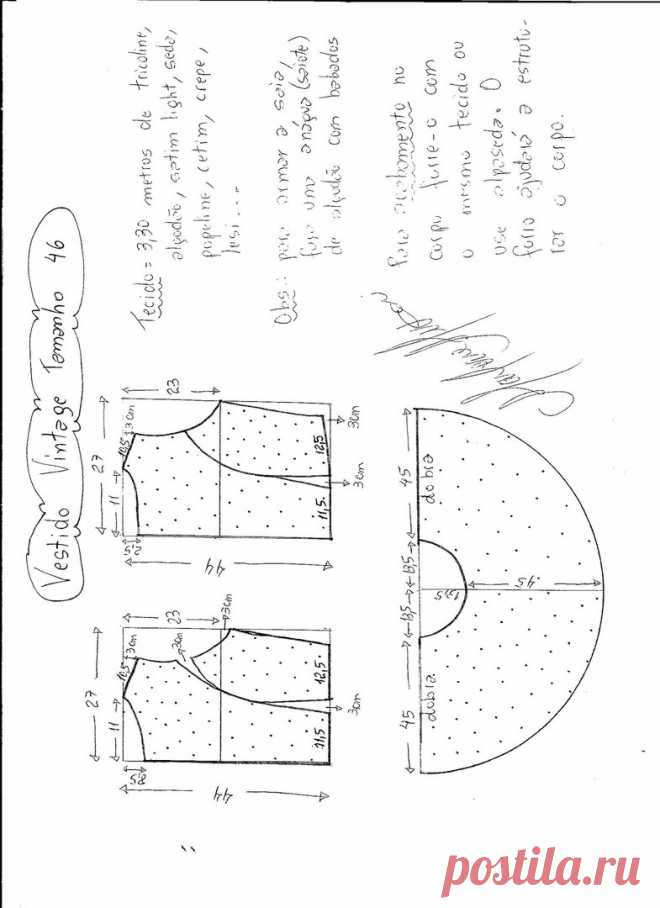 Vestido Vintage Tamanho 46
Tecido = 3,30 metros de tricoline,
algodão, satim light, seda,
popeline, cetim, crepe,
lesi....
Obs.: para armar a saia,
faça uma anágua (saiote)
de algodão com babados
Para acabamento no
corpo forre-o com
o mesmo tecido ou
use alpaseda. O
forro ajudará a estrutu-
rar o corpo.
27
11
12,5
3cm
3,5
23
3cm
3cm
44
11,5
12,5
3cm
27
11
12,5
3cm
2,5
23
44
11,5
12,5
3cm
3cm
45
13,5
13,5
45
dobra
dobra
13,5
45
postila.ru